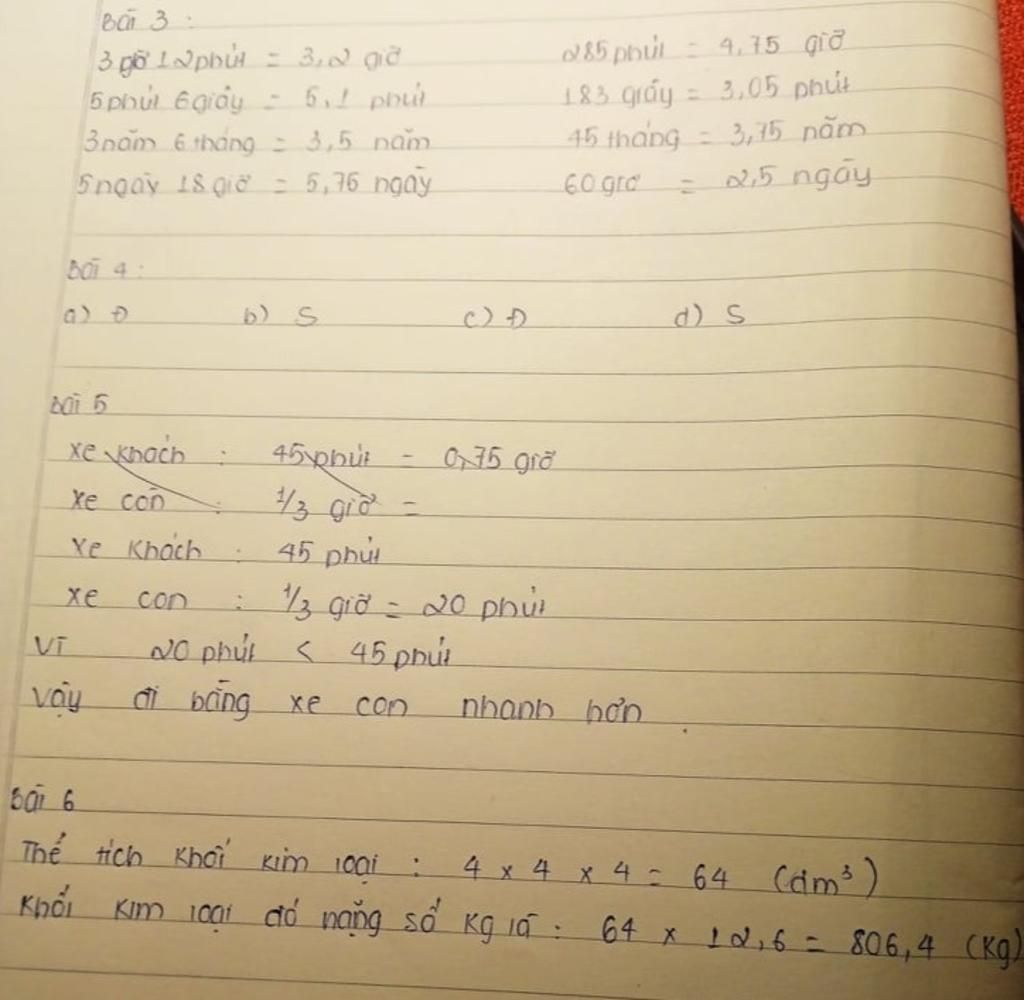 Bài 3 :
3 giờ 12 phút = 3,2 giờ 285 phút = 4,75 giờ
5 phút 6 giây = 5,1 phút 183 giây = 3,05 phút
3 năm 6 tháng = 3,5 năm 45 tháng = 3,75 năm
5 ngày 18 giờ = 5,75 ngày 60 giờ = 2,5 ngày
Bài 4 :
a) Đ b) S c) Đ d) S
Bài 5
xe khách : 45 phút = 0,75 giờ
xe con : 1/3 giờ =
xe khách : 45 phút
xe con : 1/3 giờ = 20 phút
Vì 20 phút < 45 phút
Vậy đi bằng xe con nhanh hơn .
Bài 6
Thể tích khối kim loại : 4 x 4 x 4 = 64 (dm³)
Khối kim loại đó nặng số kg là : 64 x 12,6 = 806,4 (kg)